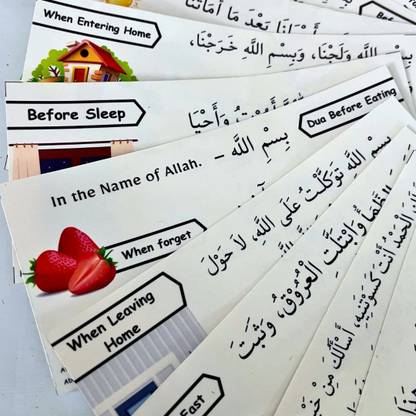 بَعْدَ مَا أَمَاتَنَا
When Entering Home
بِسْمِ اللَّهِ وَلَجْنَا، وَبِسْمِ اللَّهِ خَرَجْنَا،
Before Sleep
وَأَحْيَا
Dua Before Eating
In the Name of Allah. – بِسْمِ اللَّهِ
When forget
When Leaving
Home
بِسْمِ اللَّهِ تَوَكَّلْتُ عَلَى اللَّهِ، لَا حَوْلَ
Fast
الظَّمَأُ وَابْتَلَّتِ الْعُرُوْقُ، وَثَبَتَ
الْحَمْدُ أَنْتَ كَسَوْتَنِيهِ، أَسْأَلُكَ مِنْ